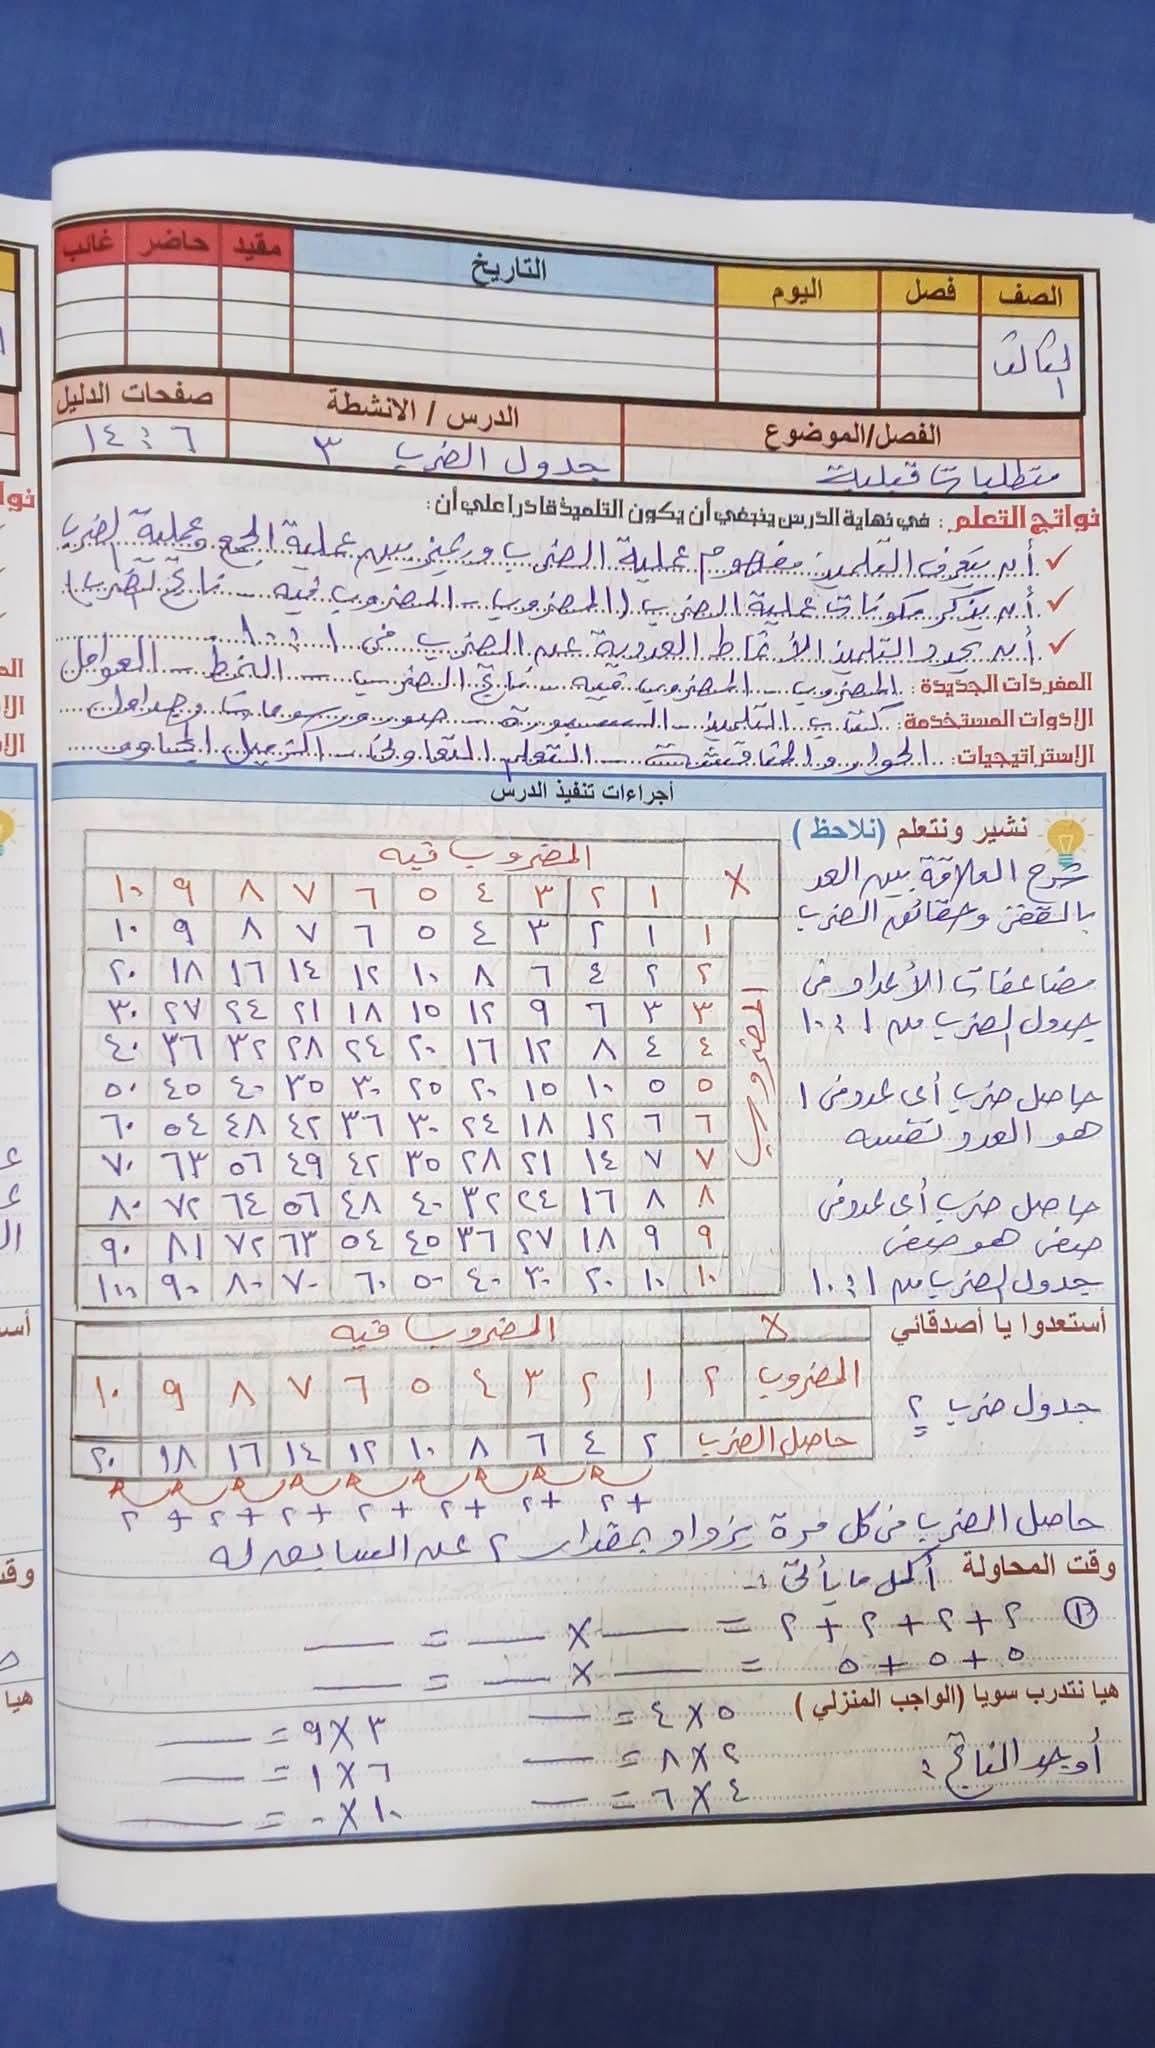 الصف فصل اليوم التاريخ مقيد حاضر غائب
الثالث
الفصل/الموضوع الدرس / الانشطة صفحات الدليل
متطلبات قبلية جدول الضرب ٣ ٦ : ١٤
نواتج التعلم : في نهاية الدرس ينبغي أن يكون التلميذ قادرا علي أن:
✓ أن يتعرف التلميذ مفهوم عملية الضرب ويميز بين عملية الجمع وعملية الضرب
✓ أن يذكر مكونات عملية الضرب (المضروب - المضروب فيه - ناتج الضرب)
✓ أن يحدد التلميذ الأنماط العددية عند الضرب في ١ : ١٠
المفردات الجديدة: المضروب - المضروب فيه - ناتج الضرب - النمط - العوامل
الادوات المستخدمة: كتاب التلميذ - السبورة - صور ورسومات وجداول
الاستراتيجيات: الحوار والمناقشة - التعلم التعاوني -
أجراءات تنفيذ الدرس
نشير ونتعلم (نلاحظ )
شرح العلاقة بين العد
بالقفز وحقائق الضرب
مضاعفات الأعداد في
جدول الضرب من ١ : ١٠
حاصل ضرب أى عدد في ١
هو العدد نفسه
حاصل ضرب أى عدد في
صفر هو صفر
جدول الضرب من ١ : ١٠
X المضروب فيه
١ ٢ ٣ ٤ ٥ ٦ ٧ ٨ ٩ ١٠
المضروب
١ ١ ٢ ٣ ٤ ٥ ٦ ٧ ٨ ٩ ١٠
٢ ٢ ٤ ٦ ٨ ١٠ ١٢ ١٤ ١٦ ١٨ ٢٠
٣ ٣ ٦ ٩ ١٢ ١٥ ١٨ ٢١ ٢٤ ٢٧ ٣٠
٤ ٤ ٨ ١٢ ١٦ ٢٠ ٢٤ ٢٨ ٣٢ ٣٦ ٤٠
٥ ٥ ١٠ ١٥ ٢٠ ٢٥ ٣٠ ٣٥ ٤٠ ٤٥ ٥٠
٦ ٦ ١٢ ١٨ ٢٤ ٣٠ ٣٦ ٤٢ ٤٨ ٥٤ ٦٠
٧ ٧ ١٤ ٢١ ٢٨ ٣٥ ٤٢ ٤٩ ٥٦ ٦٣ ٧٠
٨ ٨ ١٦ ٢٤ ٣٢ ٤٠ ٤٨ ٥٦ ٦٤ ٧٢ ٨٠
٩ ٩ ١٨ ٢٧ ٣٦ ٤٥ ٥٤ ٦٣ ٧٢ ٨١ ٩٠
١٠ ١٠ ٢٠ ٣٠ ٤٠ ٥٠ ٦٠ ٧٠ ٨٠ ٩٠ ١٠٠
أستعدوا يا أصدقائي
جدول ضرب ٢
X المضروب فيه
المضروب ٢ ١ ٢ ٣ ٤ ٥ ٦ ٧ ٨ ٩ ١٠
حاصل الضرب ٢ ٤ ٦ ٨ ١٠ ١٢ ١٤ ١٦ ١٨ ٢٠
+ ٢ + ٢ + ٢ + ٢ + ٢ + ٢ + ٢ + ٢
حاصل الضرب في كل مرة يزداد بمقدار ٢ عن السابق له
وقت المحاولة أكمل ما يأتى :-
① ٢ + ٢ + ٢ + ٢ = ___ X ___ = ___
٥ + ٥ + ٥ = ___ X ___ = ___
هيا نتدرب سويا (الواجب المنزلي )
أوجد الناتج :
٥ X ٤ = ___ ٣ X ٩ = ___
٢ X ٨ = ___ ٦ X ١ = ___
٤ X ٦ = ___ ١٠ X ٠ = ___